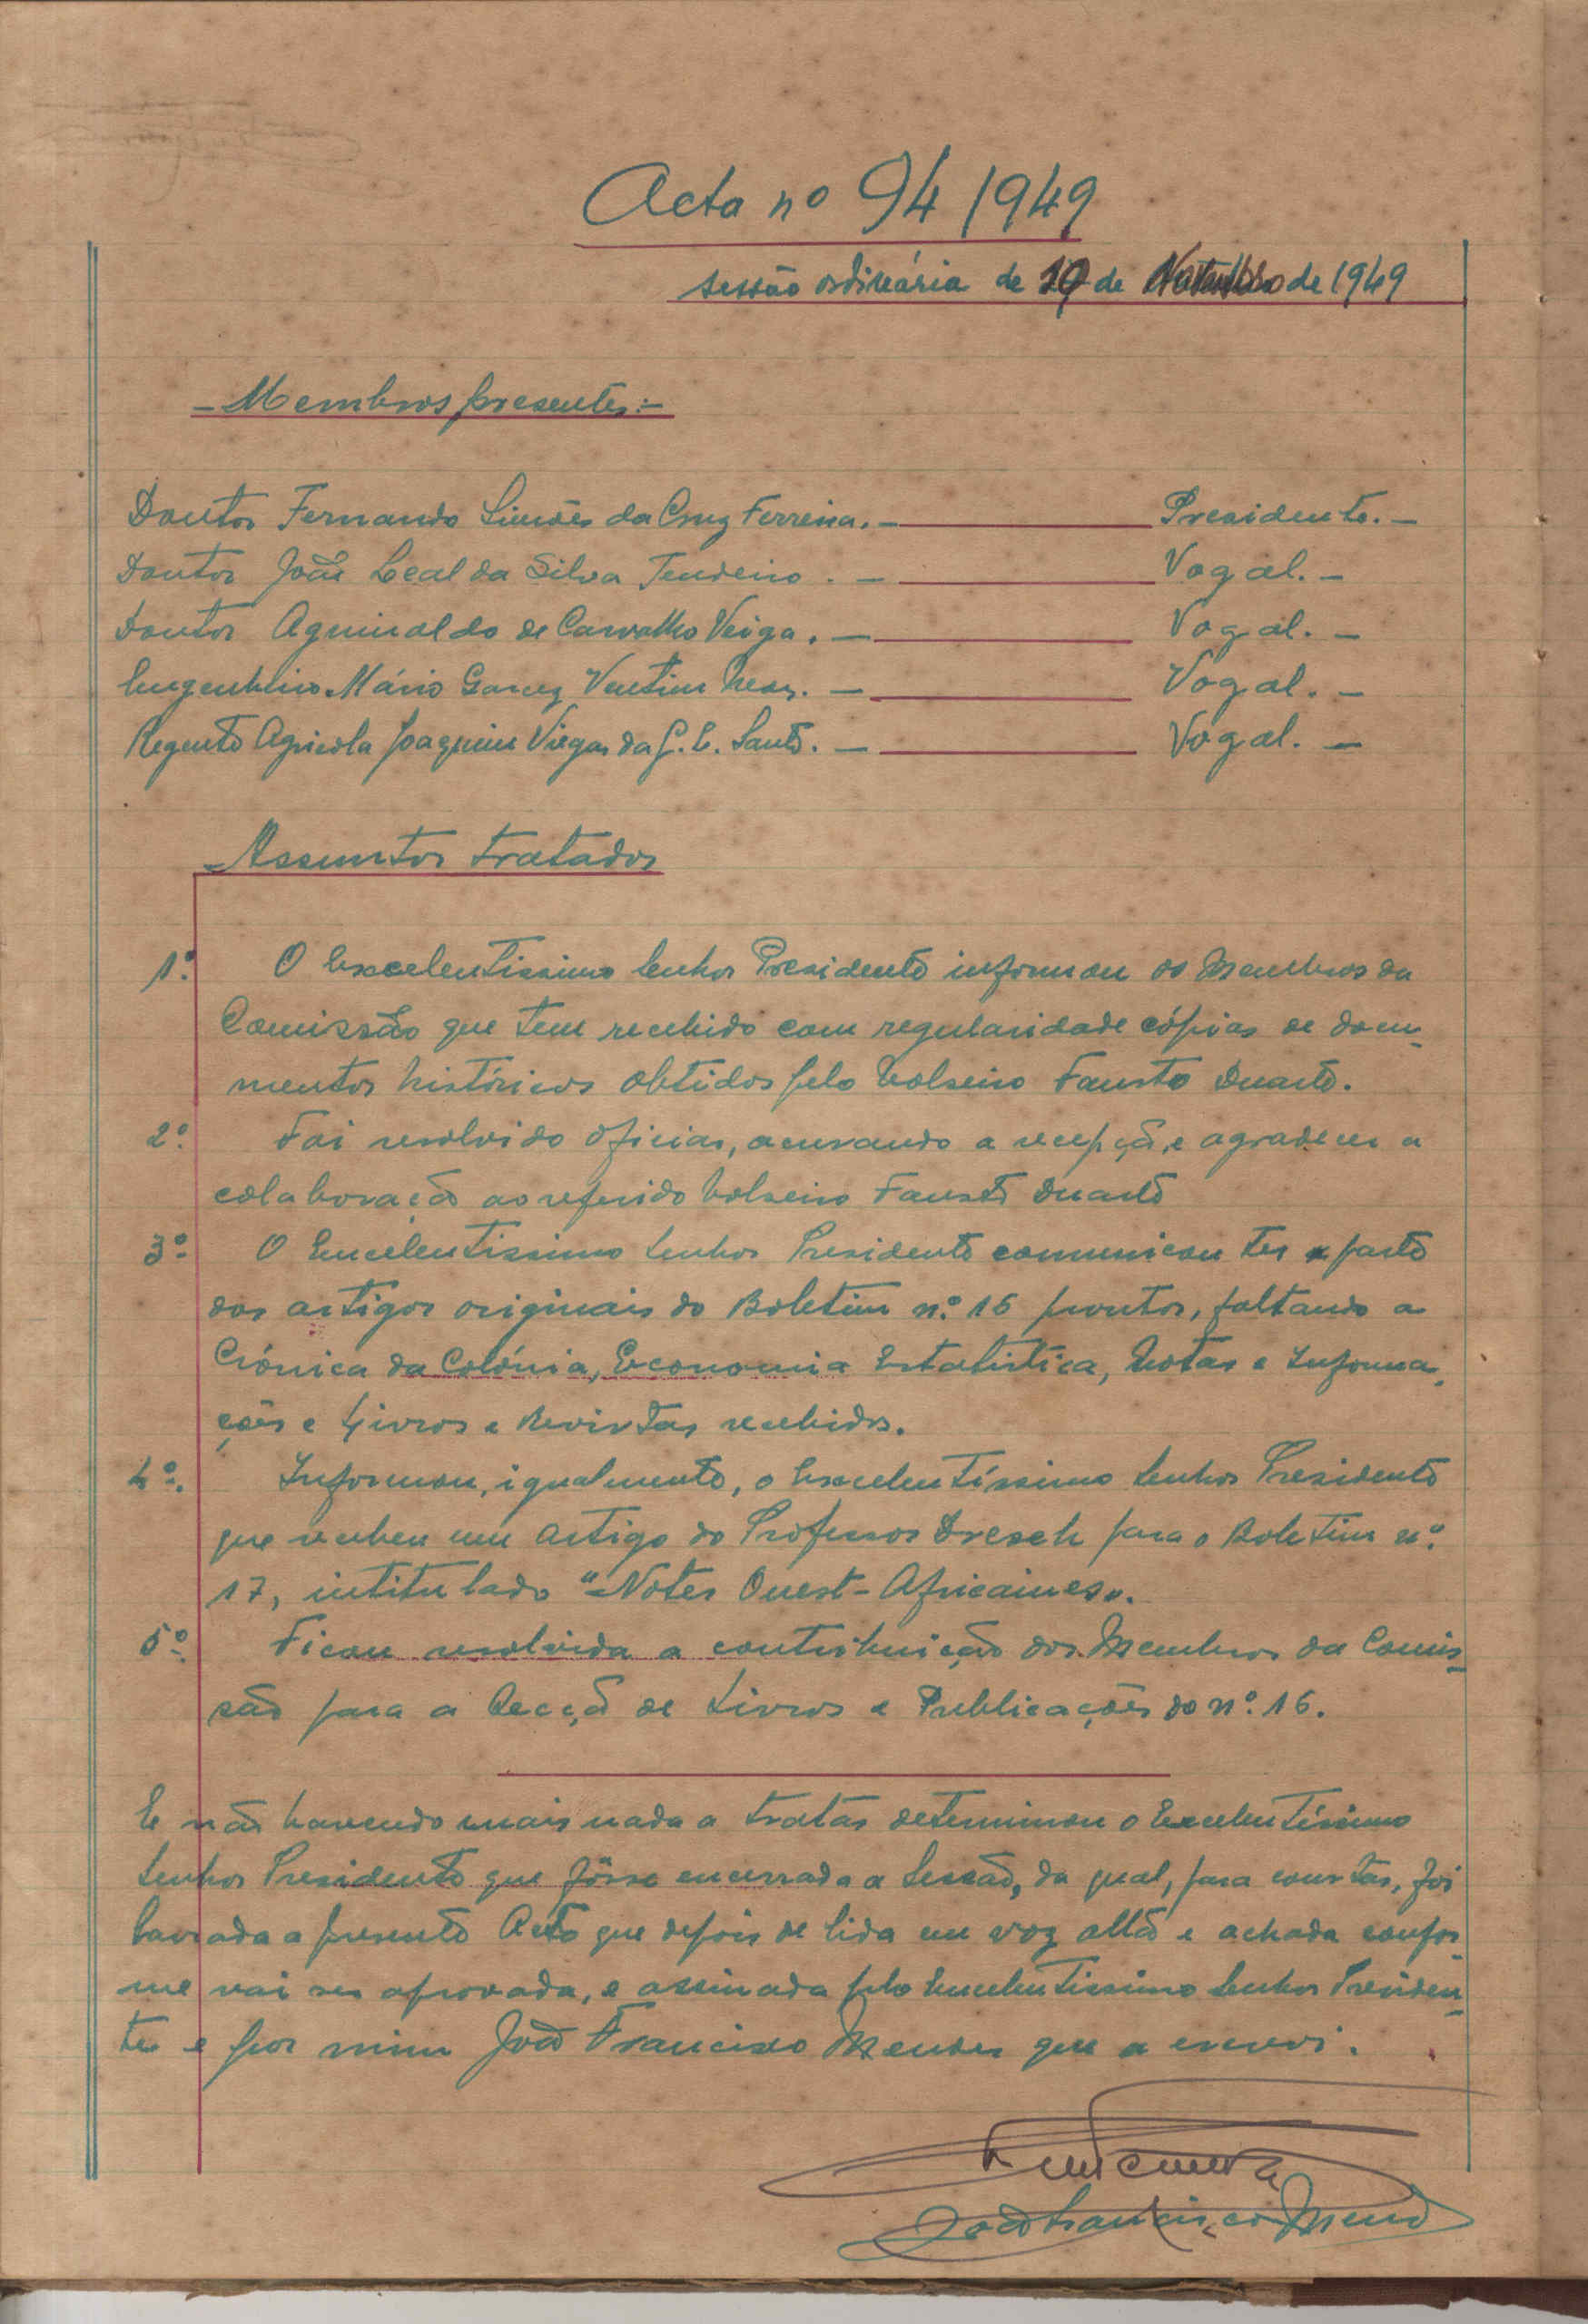 Acta nº 94/1949
sessão ordinária de de de 1949
- Membros presentes:-
Doutor Fernando Simões da Cruz Ferreira. - Presidente. -
Doutor João Leal da Silva Tendeiro. - Vogal. -
Doutor Aguinaldo de Carvalho Veiga. - Vogal. -
Engenheiro Mário Garcez Vogal. -
Regente Agricola Joaquim Viegas da G. C. Santo. - Vogal. -
Assuntos tratados
1º. O Excelentissimo Senhor Presidente informou os Membros da
Comissão que tem recebido com regularidade cópias de docu-
mentos históricos obtidos pelo bolseiro Fausto Duarte.
2º Foi resolvido oficiar, acusando a recepção, e agradecer a
colaboração ao referido bolseiro Fausto Duarte
3º O Excelentissimo Senhor Presidente comunicou ter a parte
dos artigos originais do Boletim nº 16 prontos, faltando a
Crónica da Colónia, Economia Estatistica, Notas e Informa-
ções e Livros e Revistas recebidos.
4º. Informou, igualmente, o Excelentíssimo Senhor Presidente
que recebeu um artigo do Professor Dresch para o Boletim nº
17, intitulado "Notes Ouest-Africaines".
5º Ficou resolvida a contribuição dos Membros da Comis-
são para a Secção de Livros e Publicações do nº 16.
E não havendo mais nada a tratar determinou o Excelentíssimo
Senhor Presidente que fôsse encerrada a Sessão, da qual, para constar, foi
lavrada a presente Acta que depois de lida em voz alta e achada confor-
me vai ser aprovada, e assinada pelo Excelentissimo Senhor Presiden-
te e por mim João Francisco Mendes que a escrevi.
João Francisco Mendes